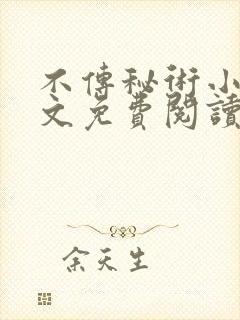 不傳秘術小
文免費閱讀
余天生